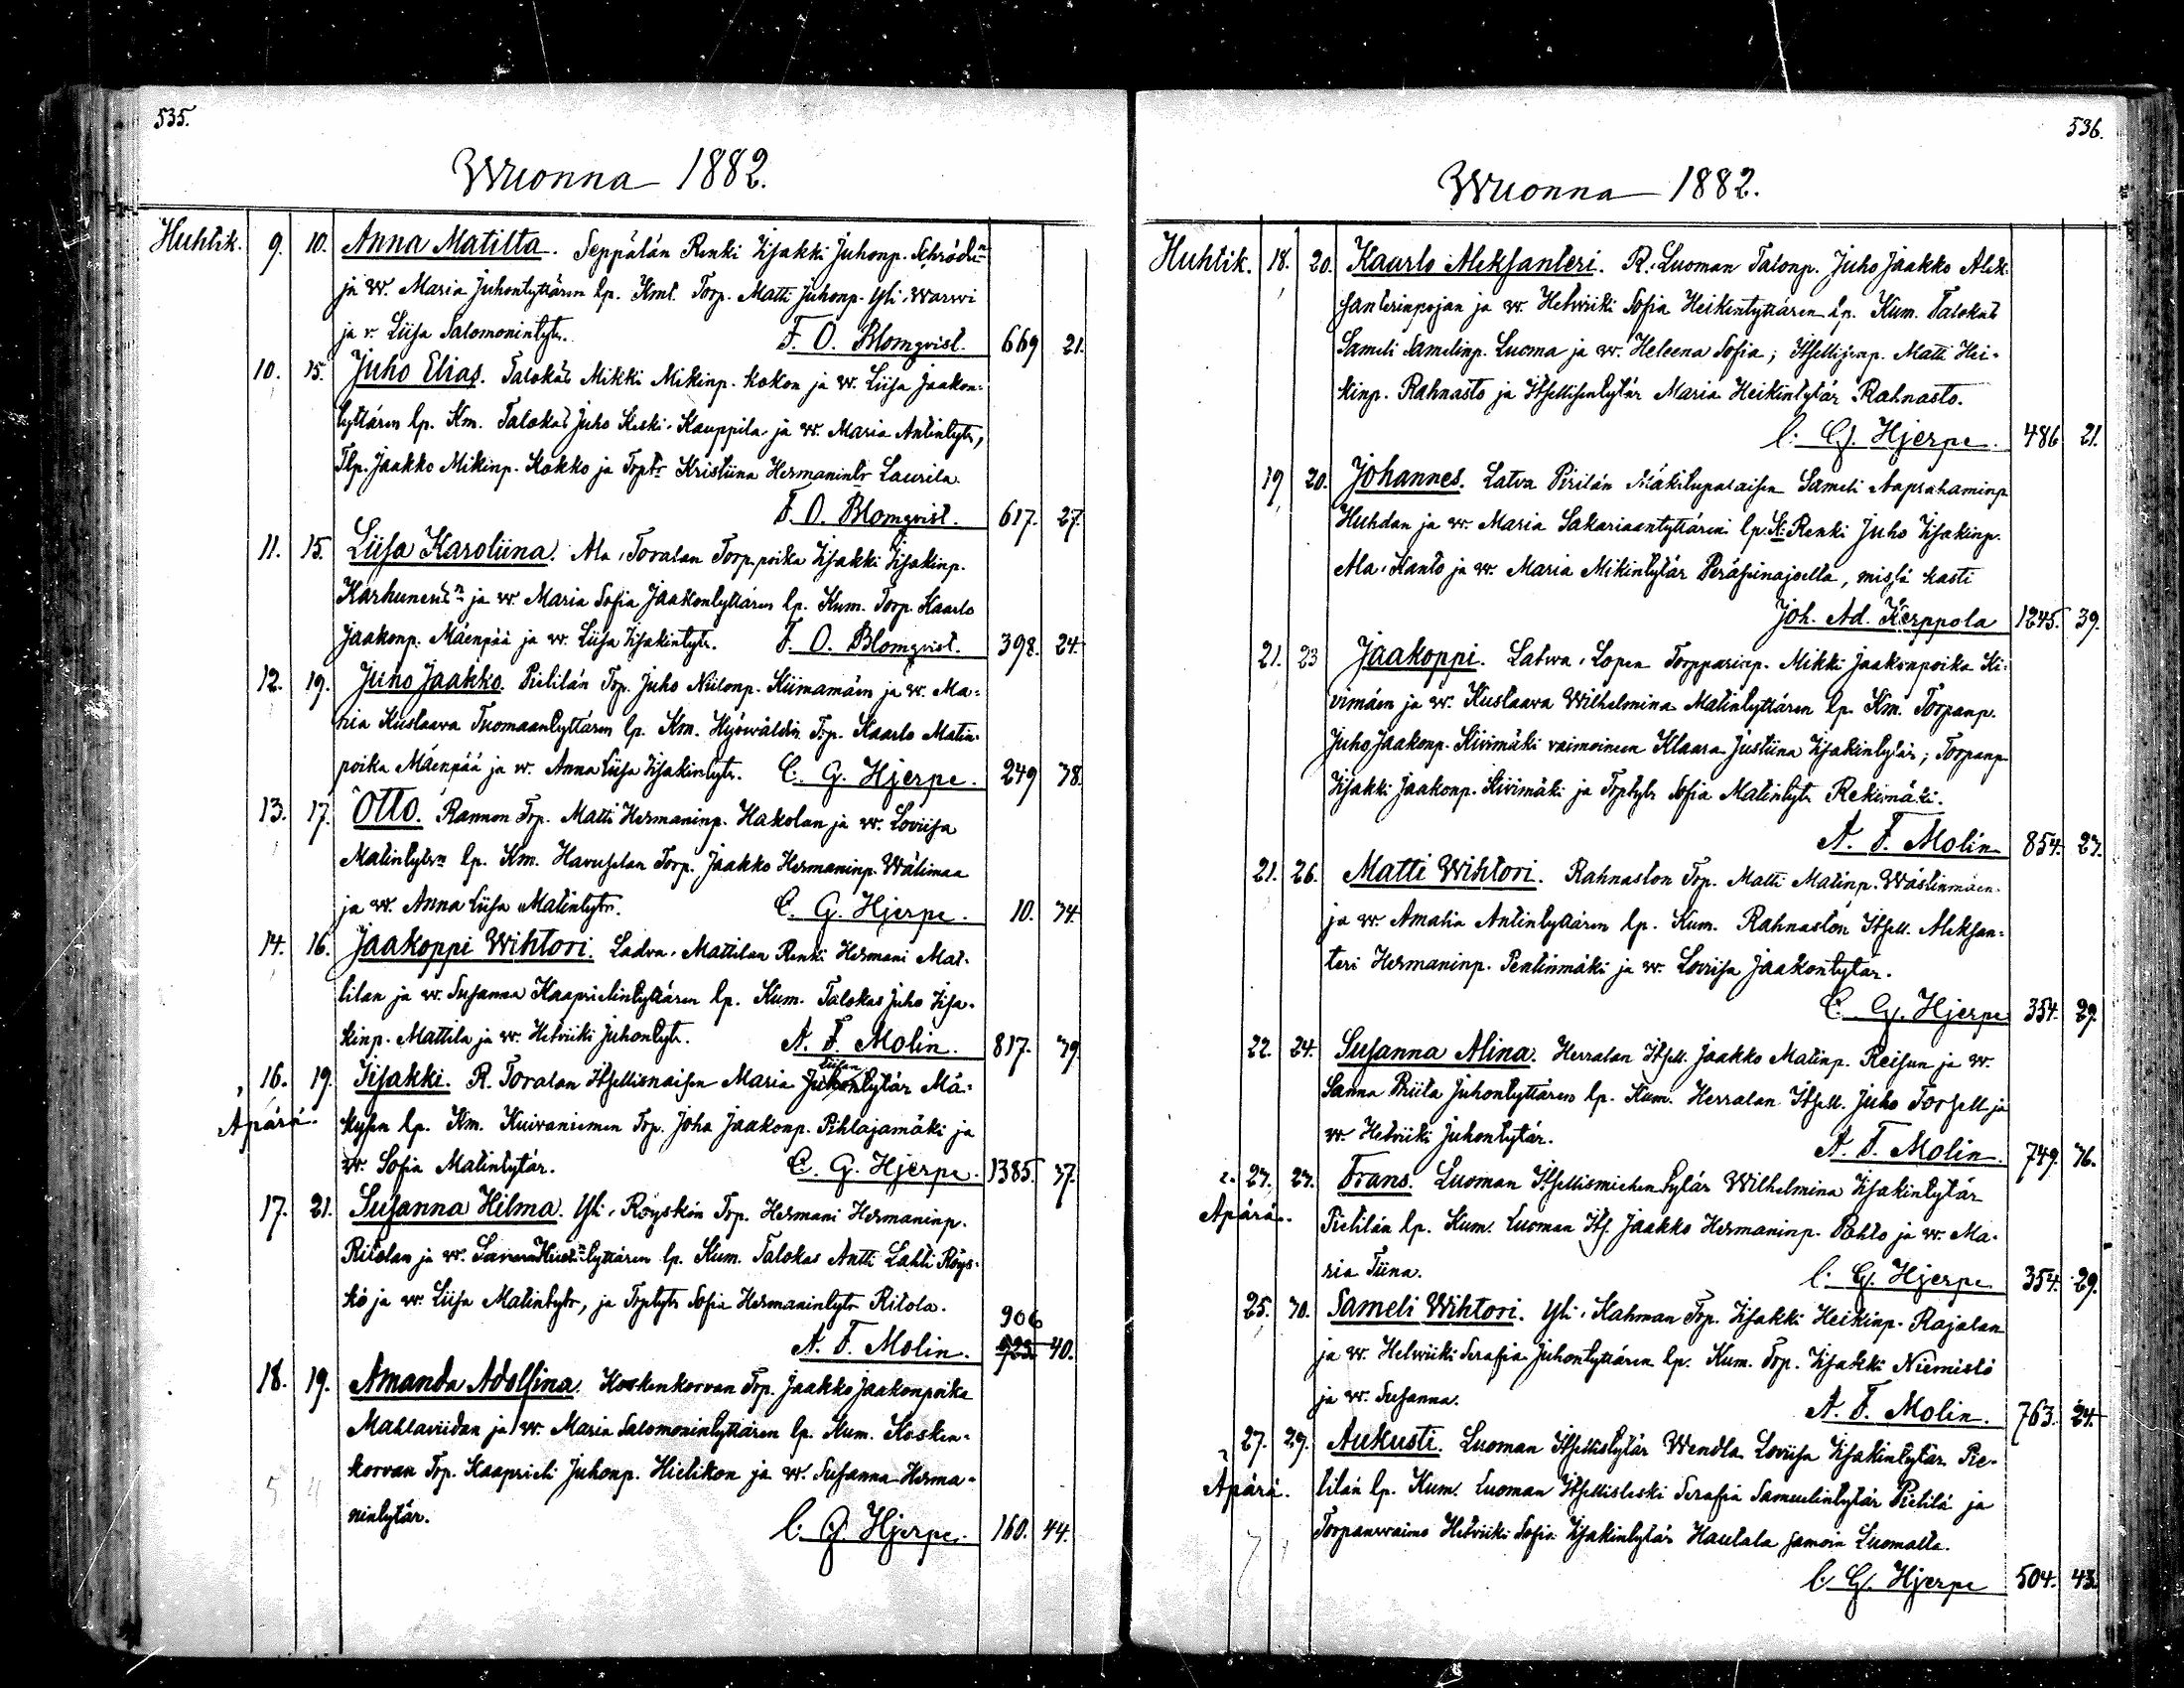 535.
Wuonna 1882.
Huhtik. 9. 10. Anna Matilta. Seppälän Renki Iisakki Juhonp. Schródn
ja w. Maria Juhontyttären lp. Kmt. Torp. Matti Juhonp. Yli-Warwi
ja v. Liisa Salomonintytr. F. O. Blomqvist. 669 21.
10. 15. Juho Elias. Talokas Mikki Mikinp. Kokon ja w. Liisa Jaakon-
tyttären lp. Km. Talokas Juho Keski-Kauppila ja w. Maria Antintytr,
Tlp. Jaakko Mikinp. Kokko ja Trptr Kristiina Hermanintr Laurila.
F. O. Blomqvist. 617. 27.
11. 15. Liisa Karoliina. Ala-Toralan Torp. poika Iisakki Iisakinp.
Karhunen ja w. Maria Sofia Jaakontyttären lp. Kum. Torp. Kaarlo
Jaakonp. Mäenpää ja w. Liisa Iisakintytr. F. O. Blomqvist. 398. 24.
12. 19. Juho Jaakko. Pietilän Trp. Juho Niilonp. Kiimamäen ja w. Ma-
ria Kustaava Tuomaantyttären lp. Km. Hyöwältin Trp. Kaarlo Matin-
poika Mäenpää ja w. Anna Liisa Iisakintytr. C. G. Hjerpe. 249 38.
13. 17. Otto. Rannon Trp. Matti Hermaninp. Hakolan ja w. Loviisa
Matintytrn lp. Km. Havuselan Torp. Jaakko Hermaninp. Wälimaa
ja w. Anna Liisa Matintytr. C. G. Hjerpe. 10. 34.
14. 16. Jaakoppi Wihtori. Ladva-Mattilan Renki Hermani Mat-
tilan ja w. Susanna Kaaprielintyttären lp. Kum. Talokas Juho Iisa-
kinp. Mattila ja w. Hetviiki Juhontytr. A. F. Molin. 817. 39.
16. 19. Iisakki. R. Toralan Itsellisnaisen Maria Juhontytär Liisan Mä-
Äpärä. kysen lp. Km. Kuivaniemen Trp. Joha Jaakonp. Pihlajamäki ja
w. Sofia Matintytär. C. G. Hjerpe. 1385. 37.
17. 21. Susanna Hilma. Yli-Röyskön Trp. Hermani Hermaninp.
Ritolan ja w. Sanna tyttären lp. Kum. Talokas Antti Lahti Röys-
kö ja w. Liisa Matintytr, ja Trptytr Sofia Hermanintytr Ritola.
906
A. F. Molin. 723. 40.
18. 19. Amanda Adolfina. Koskenkorvan Trp. Jaakko Jaakonpoika
Mahlaviidan ja w. Maria Salomonintyttären lp. Kum. Kosken-
korvan Trp. Kaaprieli Juhonp. Hietikon ja w. Susanna Herma-
nintytär. C. G. Hjerpe. 160. 44.
536.
Wuonna 1882.
Huhtik. 18. 20. Kaarlo Aleksanteri. R. Luoman Talonp. Juho Jaakko Alek-
santerinpojan ja w. Hetwiiki Sofia Heikintyttären lp. Kum. Talokas
Sameli Samelinp. Luoma ja w. Heleena Sofia; Itsellisenp. Matti Hei-
kinp. Rahnasto ja Itsellisentytär Maria Heikintytär Rahnasto.
C. G. Hjerpe. 486 21.
19 20. Johannes. Latva Pirilän Mäkitupalaisen Sameli Aaprahaminp
Huhdan ja w. Maria Sakariaantyttären lp. K: Renki Juho Iisakinp.
Ala-Kanto ja w. Maria Mikintytär Peräseinajoelta, missä kasti
Joh. Ad. Kerppola 1245. 39.
21. 23 Jaakoppi. Latwa-Lopen Torpparinp. Mikki Jaakonpoika Ki-
vimäen ja w. Kustaava Wilhelmina Matintyttären lp. Km. Torpanp.
Juho Jaakonp. Kivimäki vaimoineen Klaara Justiina Iisakintytär; Torpanp
Iisakki Jaakonp. Kivimäki ja Trptytr Sofia Matintytr Rekimäki.
A. F. Molin 854. 27.
21. 26. Matti Wihtori. Rahnaston Trp. Matti Matinp. Wästinmäen
ja w. Amalia Antintyttären lp. Kum. Rahnaston Itsell. Aleksan-
teri Hermaninp. Pentinmäki ja w. Loviisa Jaakontytär.
C. G. Hjerpe 354. 29.
22. 24. Susanna Alina. Herralan Itsell. Jaakko Matinp. Reisun ja w.
Sanna Priita Juhontyttären lp. Kum. Herralan Itsell. Juho Torsell ja
w. Hetviiki Juhontytär. A. F. Molin. 749. 36.
27. 27. Frans. Luoman Itsellismiehen tytär Wilhelmina Iisakintytär
Äpärä. Pietilän lp. Kum. Luoman Its. Jaakko Hermaninp. Pohto ja w. Ma-
ria Tiina. C. G. Hjerpe 354. 29.
25. 30. Sameli Wihtori. Yli-Kahman Trp. Iisakki Heikinp. Rajalan
ja w. Helwiiki Serafia Juhontyttären lp. Kum. Trp. Iisakki Niemistö
ja w. Susanna. A. F. Molin. 763. 24.
27. 29. Aukusti. Luoman Itsellistytär Wendla Loviisa Iisakintytär Pie-
Äpärä. tilän lp. Kum. Luoman Itsellisleski Serafia Samuelintytär Pietilä ja
Torpanwaimo Hetviiki Sofia Iisakintytär Hautala samoin Luomalta.
C. G. Hjerpe 504. 43.